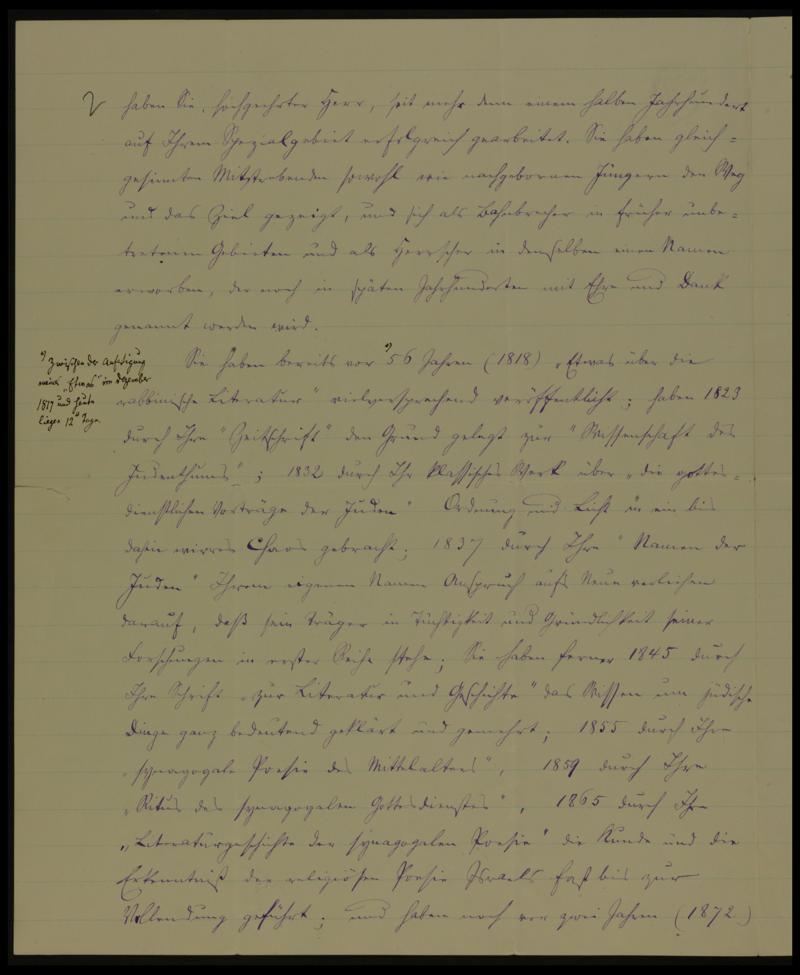 2
haben Sie, hochgeehrter Herr, seit mehr denn einem halben Jahrhundert
auf Ihrem Spezialgebiet erfolgreich gearbeitet. Sie haben gleich=
gesinnten Mitstrebenden sowohl wie nachgebornen Jüngern den Weg
und das Ziel gezeigt, und sich als Bahnbrecher in früher unbe=
tretenen Gebieten und als Herrscher in denselben einen Namen
erworben, der noch in späten Jahrhunderten mit Ehre und Dank
genannt werden wird.
Sie haben bereits vor *) 56 Jahren (1818) „Etwas über die
rabbinische Literatur" vielversprechend veröffentlicht; haben 1823
durch Ihre "Zeitschrift" den Grund gelegt zur "Wissenschaft des
Judenthums"; 1832 durch Ihr klassisches Werk über „die gottes=
dienstlichen Vorträge der Juden" Ordnung und Licht in ein bis
dahin wirres Chaos gebracht; 1837 durch Ihre "Namen der
Juden" Ihrem eigenen Namen Anspruch aufs Neue verliehen
darauf, daß sein Träger in Tüchtigkeit und Gründlichkeit seiner
Forschungen in erster Reihe stehe; Sie haben ferner 1845 durch
Ihre Schrift „zur Literatur und Geschichte" das Wissen um jüdische
Dinge ganz bedeutend geklärt und gemehrt; 1855 durch Ihre
„synagogale Poesie des Mittelalters", 1859 durch Ihre
„Ritus des synagogalen Gottesdienstes", 1865 durch Ihre
„Literaturgeschichte der synagogalen Poesie" die Kunde und die
Erkenntniß der religiösen Poesie Israels fast bis zur
Vollendung geführt; und haben noch vor zwei Jahren (1872)
*) Zwischen der Anfertigung
meines „Etwas" im Dezember
1817 und heute
liegen Tage.